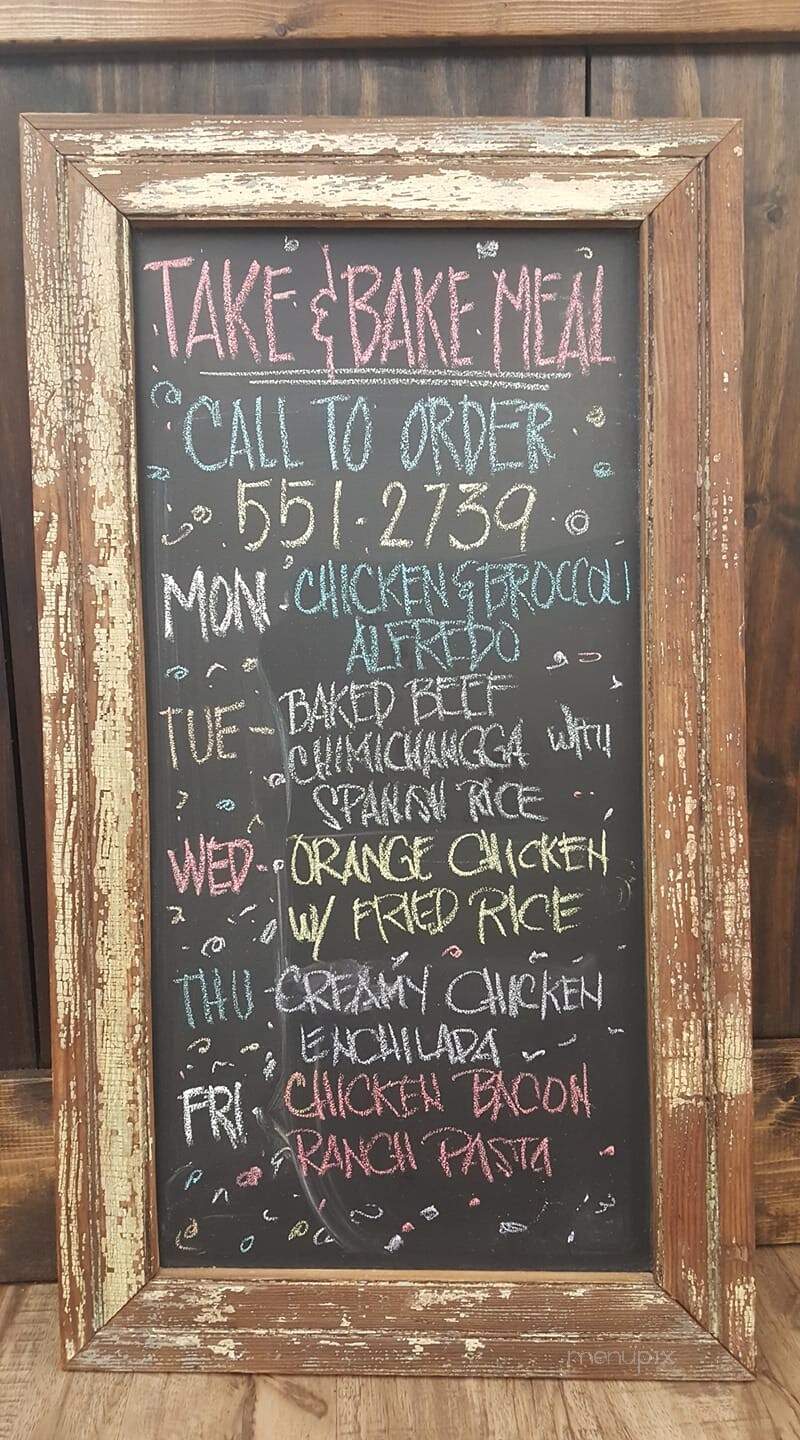 TAKE & BAKE MEAL
CALL TO ORDER
551-2739
MON - CHICKEN & BROCCOLI
ALFREDO
TUE - BAKED BEEF
CHIMICHANGGA with
SPANISH RICE
WED - ORANGE CHICKEN
w/ FRIED RICE
THU - CREAMY CHICKEN
ENCHILADA
FRI - CHICKEN BACON
RANCH PASTA
menupix